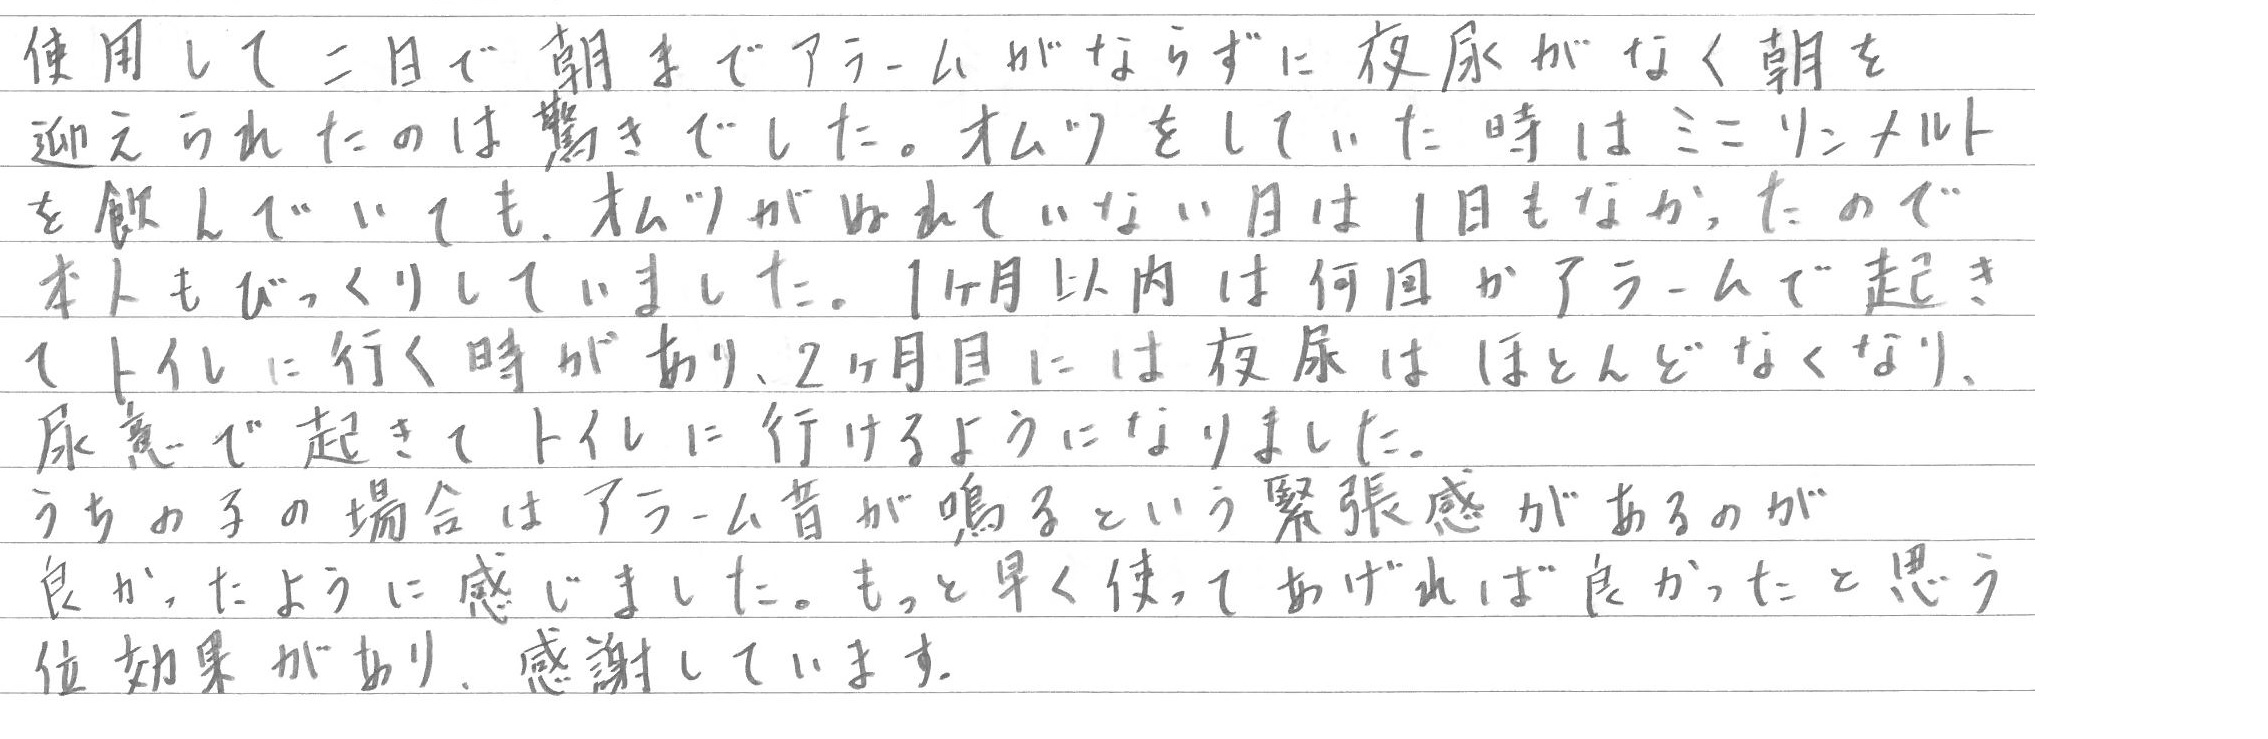 使用して二日で朝までアラームがならずに夜尿がなく朝を
迎えられたのは驚きでした。オムツをしていた時はミニリンメルト
を飲んでいても、オムツがぬれていない日は1日もなかったので
本人もびっくりしていました。1ヶ月以内は何回かアラームで起き
てトイレに行く時があり、2ヶ月目には夜尿はほとんどなくなり、
尿意で起きてトイレに行けるようになりました。
うちの子の場合はアラーム音が鳴るという緊張感があるのが
良かったように感じました。もっと早く使ってあげれば良かったと思う
位効果があり、感謝しています。